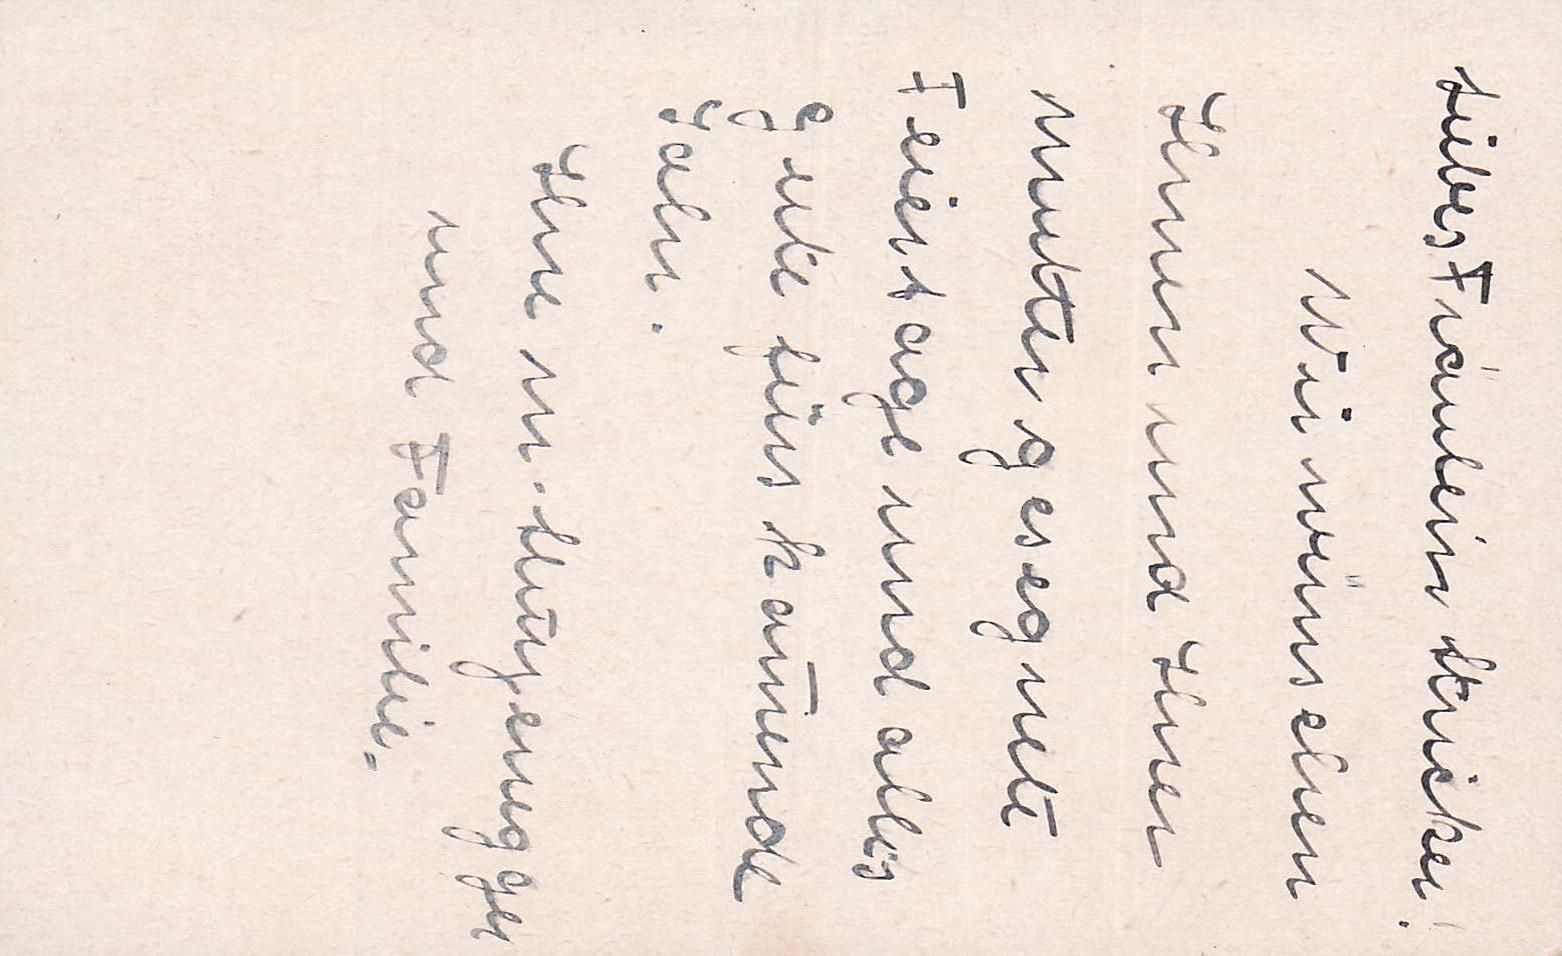 Liebes Fräulein Stricker!
Wir wünschen
Ihnen und Ihrer
Mutter gesegnete
Feiertage und alles
Gute fürs kom̅ende
Jahr.
Ihre M.
und Familie.